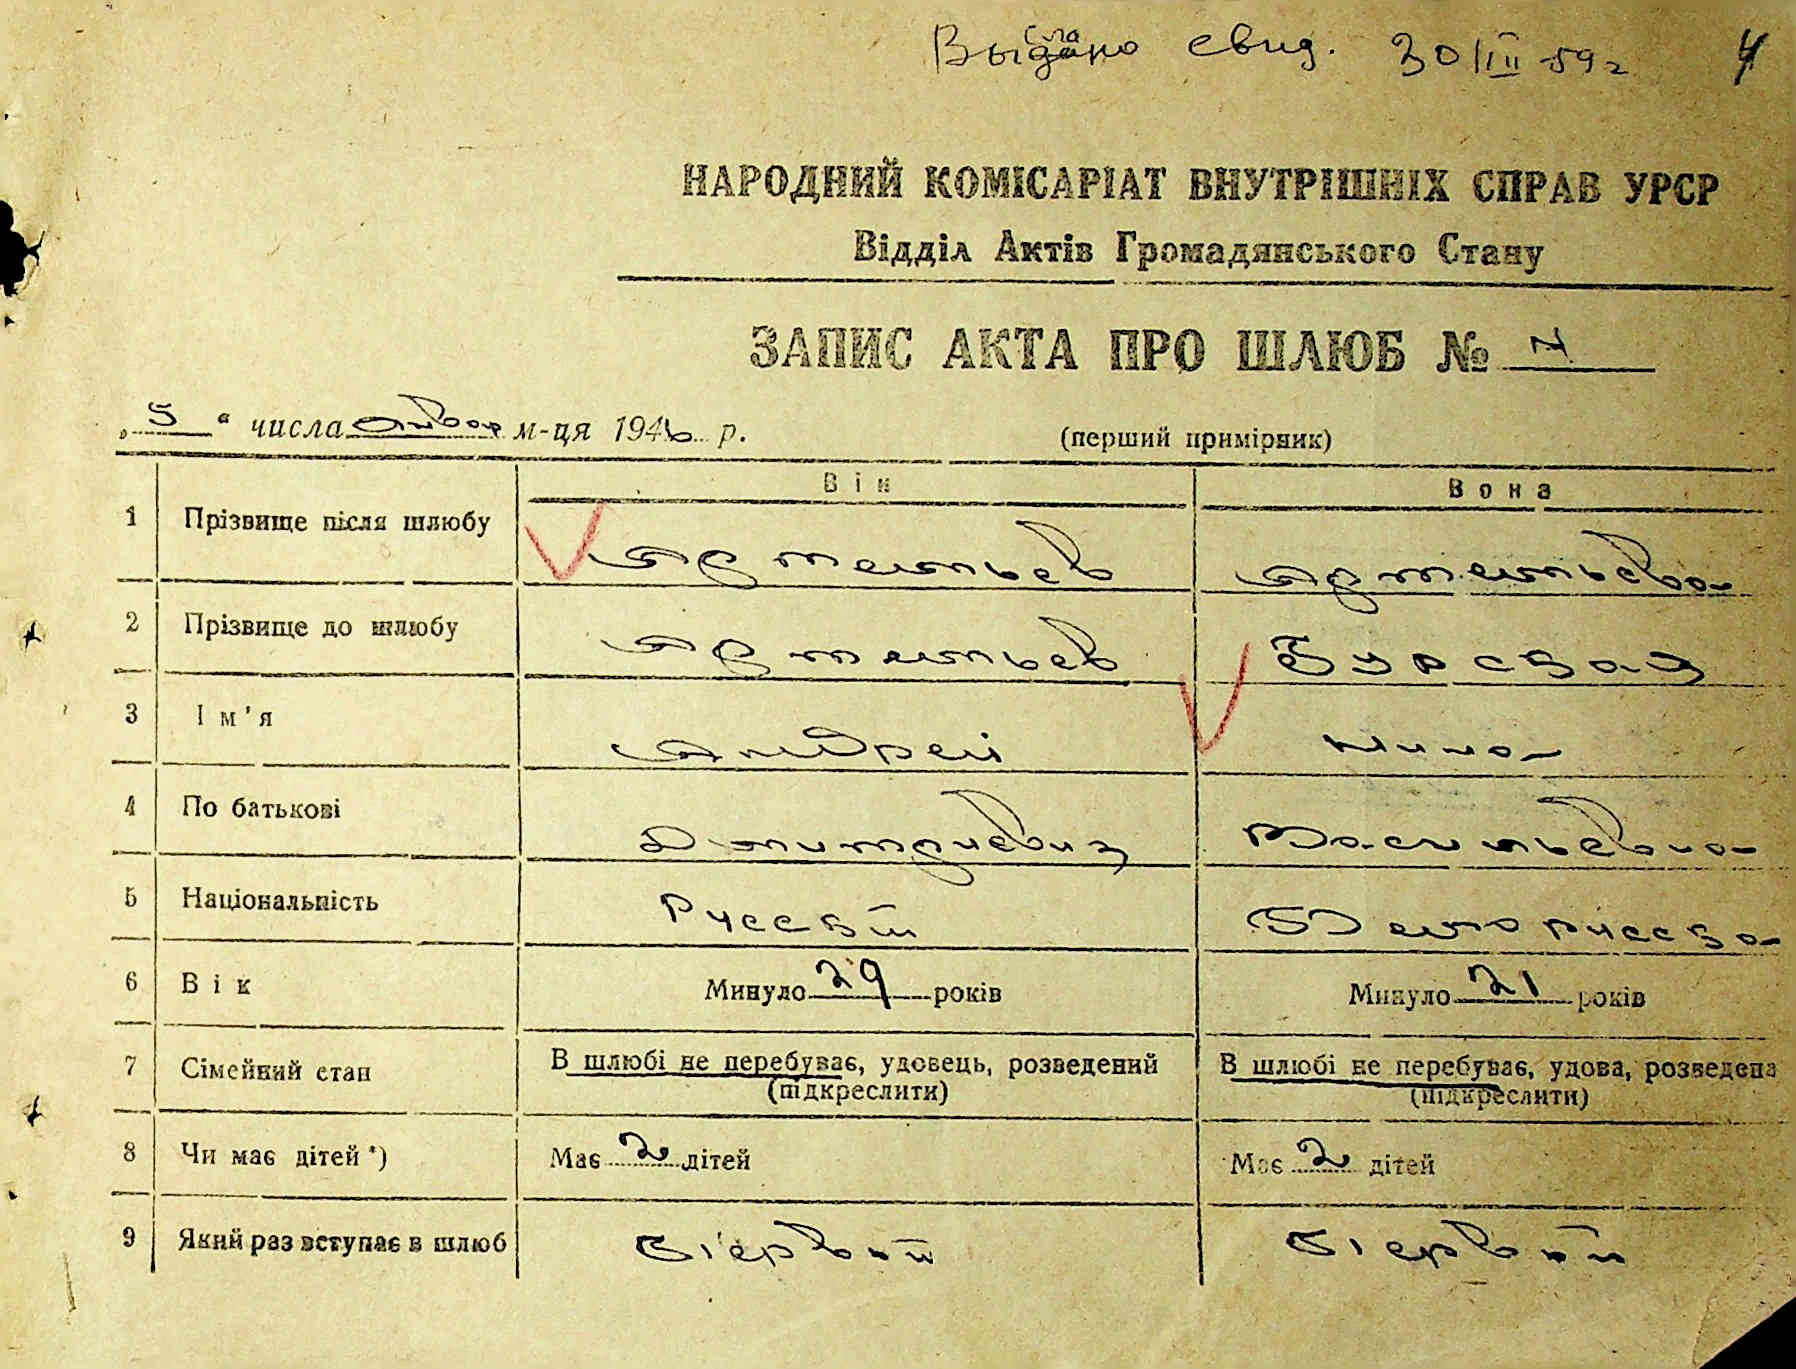 Выдано свид. 30/III-59 г
4
НАРОДНИЙ КОМІСАРІАТ ВНУТРІШНІХ СПРАВ УРСР
Відділ Актів Громадянського Стану
ЗАПИС АКТА ПРО ШЛЮБ №
„ 5 “ числа январ м-ця 1946 р.
(перший примірник)
Він Вона
1 Прізвище після шлюбу Артемьев Артемьева
2 Прізвище до шлюбу Артемьев Бурская
3 Ім'я Андрей Нина
4 По батькові Дмитриевич Васильевна
5 Національність Русский Белорусска
6 Вік Минуло 29 років Минуло 21 років
7 Сімейний стан В шлюбі не перебуває, удовець, розведений В шлюбі не перебуває, удова, розведена
(підкреслити) (підкреслити)
8 Чи має дітей *) Має 2 дітей Має 2 дітей
9 Який раз вступає в шлюб Первый Первый